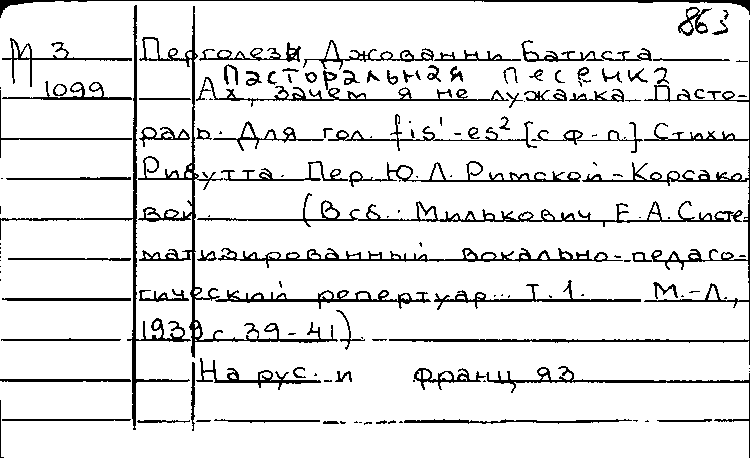 863
М 3 Перголези, Джованни Батиста
Пасторальная песенка
1099 Ах, зачем я не лужайка Пасто-
раль. Для гол. fis¹-es² [с ф-п.] Стихи
Ривутта. Пер. Ю. Л. Римской-Корсако
вой. (В сб.: Милькович, Е. А. Систе-
матизированный вокально-педаго-
гический репертуар... Т. 1. М.-Л.,
1939 с. 39-41)
На рус. и франц яз